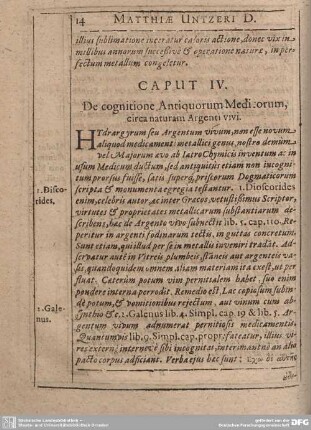 14 MATTHIÆ UNTZERI D.
illius sublimatione incoatur caloris actione, donec vix in
millibus annorum successivè & operatione naturæ, in per-
fectum metallum congeletur.
CAPUT IV.
De cognitione Antiquorum Medicorum,
circa naturam Argenti vivi.
HYdrargyrum seu Argentum vivum, non esse novum
aliquod medicamenti metallici genus, nostro demum
vel Majorum ævo ab IatroChymicis inventum ac in
usum Medicum ductum, sed antiquitùs etiam non incogni-
tum prorsus fuisse, satis superq; priscorum Dogmaticorum
1. Diosco-
rides,
scripta & monumenta egregia testantur. 1. Dioscorides
enim, celebris autor, ac inter Græcos vetustissimus Scriptor,
virtutes & proprietates metallicarum substantiarum de-
scribens, hac de Argento vivo subnectit lib. 5. cap. 110. Re-
peritur in argenti fodinarum tectis, in guttas concretum.
Sunt etiam, qui illud per se in metallis inveniri tradāt. Ad-
servatur autē in vitreis plumbeis, stāneis aut argenteis va-
sis, quandoquidem omnem, aliam materiam ita exest, ut per-
fluat. Cæterùm potum vim pernitialem habet, suo enim
pondere interna perrodit. Remedio est, Lac copiosum subin-
dè potum, & vomitionibus rejectum, aut vinum cum ab-
2. Gale-
nus.
synthio & c. 2. Galenus lib. 4. Simpl. cap. 19 & lib. 5. Ar-
gentum vivum adnumerat pernitiosis medicamentis.
Quamvis lib. 9. Simpl. cap. propr. fateatur, illius
vires externè; internevè sibi incognitas, interimantnè an alio
pacto corpus adficiant. Verba ejus hæc sunt: